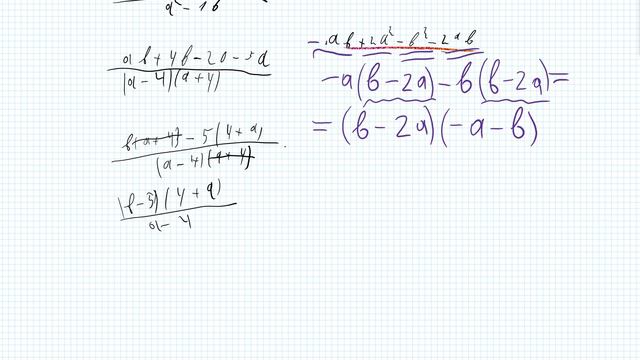 a² - 16
ab + 4b - 20 - 5a
(a - 4)(a + 4)
b(a + 4) - 5(4 + a)
(a - 4)(a + 4)
(b - 5)(4 + a)
a - 4
- ab + 2a² - b² - 2ab
-a(b - 2a) - b(b - 2a) =
= (b - 2a)(-a - b)